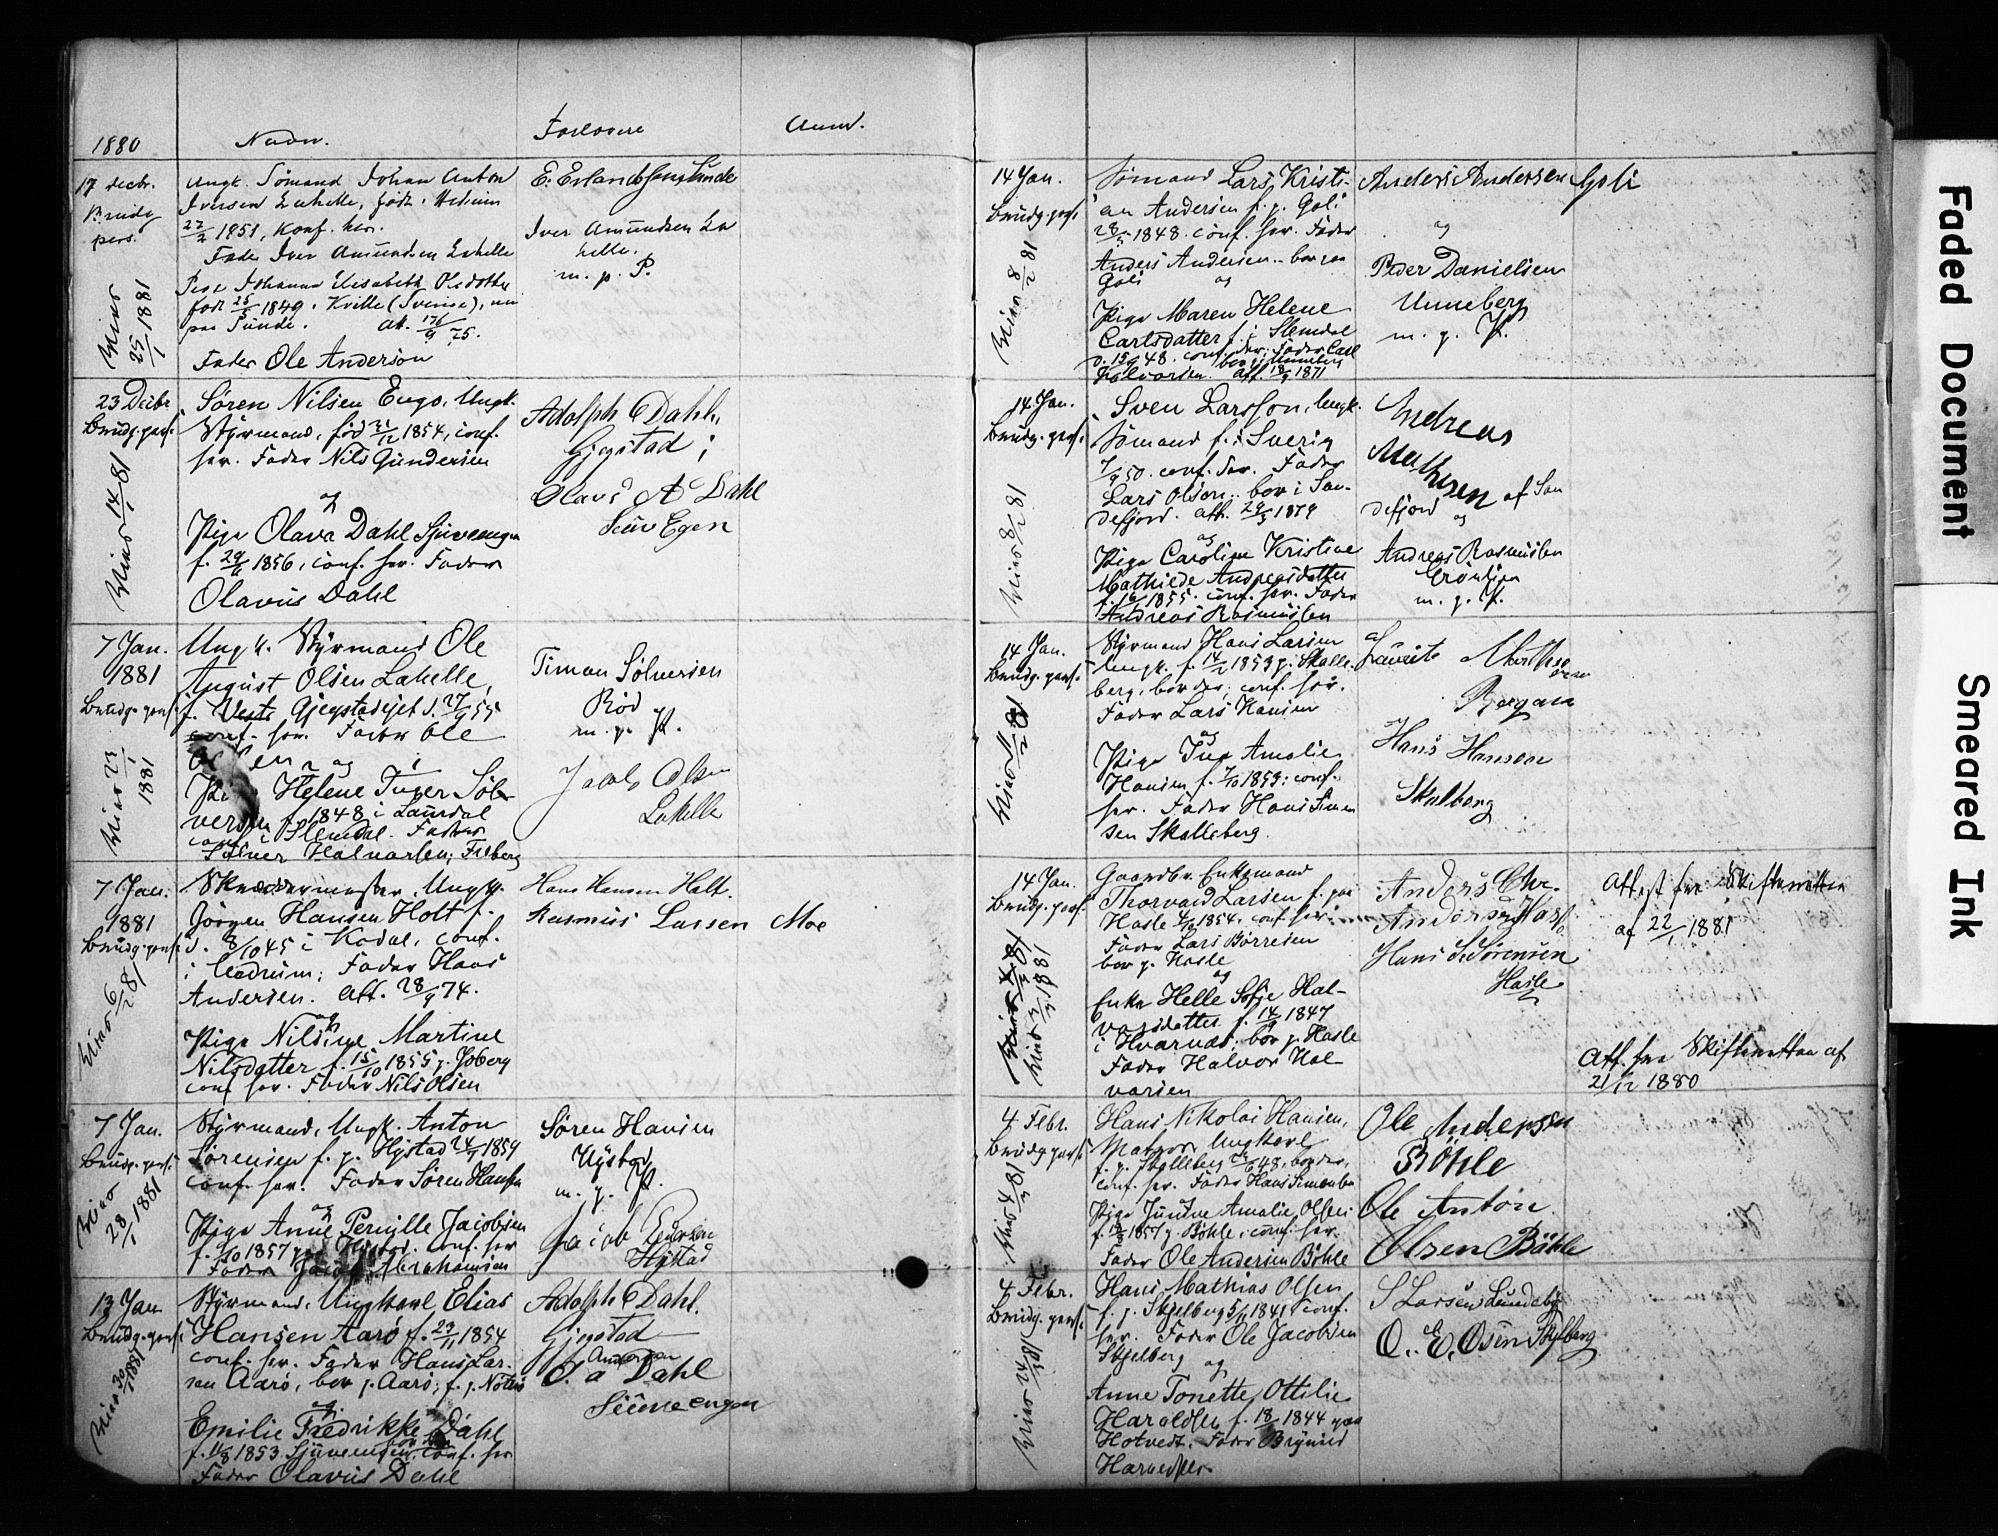 1880
Navn.
Forlovere
Anm.
17 decbr.
Brudg
pers.
Viet
25/1 1881
Ungk. Sømand Johan Anton
Iversen Lahelle, født i Hedrum
1851, Konf. her.
Fader Iver Amundsen Lahelle
Pige Johanne Elisabeth Olsdatter
født 25/5 1849 i Kville (Sverige), nu
paa Sunde.
Fader Ole Anderson
E. Erlandsen Sunde
Iver Amundsen La
helle.
m. p. P.
23 Decbr
Brudg. pers.
Viet 14/1 81
Søren Nilsen Engo, Ungk.
Styrmand, fød 21/12 1854, conf.
her. Fader Nils Gundersen
og
Pige Olava Dahl Sjuveengen
f. 1856, conf. her. Fader
Olavus Dahl
Adolph E Dahl,
Gjegstad;
Olavs A Dahl
7 Jan.
1881
Brudg. pers.
Viet 23/1
1881
Ungk. Styrmand Ole
August Olsen Lahelle,
f. Vestr Gjegstadejet d. 27/9 55
conf. her. Fader Ole
og
Helene Inger Søl-
versen f. 1848 i Laurdal
conf. i Slemdal. Fader
Sølver Halvorsen, Freberg
Timan Sølversen
Rød
m. p. P.
Jacob Olsen
Lahelle
7 Jan.
1881
Brudg. pers.
Viet 6/2 81
Skræddermester, Ungk.
Jørgen Hansen Holt f.
d. 8/10 45 i Kodal, conf.
i Hedrum; Fader Hans
Andersen. Att. 28/9 74.
og
Pige Nildine Martine
Nilsdatter f. 15/10 1855 p. Joberg
conf. her. Fader Nils Olsen
Hans Hansen Holt.
Rasmus Larsen Moe
7 Jan.
Brudg. pers.
Viet
28/1 1881
Styrmand, Ungk. Anton
Sørensen f. p. Hystad 24/1 1859
conf. her. Fader Søren Hansen
og
Pige Anne Pernille Jacobsen
f. 1857 paa Hystad. conf. her
Fader Jacob Abrahamsen
Søren Hansen
Hystad
m. p. P.
Jacob
Hystad
13 Jan
Brudg. pers.
Viet 30/1 1881
Styrmand, Ungkarl Elias
Hansen Aarø f. 23/11 1854
conf. her. Fader Hans Lar-
sen Aarø, bor p. Aarø; f. p. Nøterø
og
Emilie Fredrikke Dahl
f. 11/8 1853 Sjuveengen, conf. her
Fader Olavus Dahl
Adolph E Dahl.
Gjegstad
Andersen
O. a Dahl
14 Jan.
Brudg. pers.
Viet 8/2 81
Sømand Lars Kristi-
an Andersen f. p. Goli
1848. conf. her. Fader
Anders Andersen. bor paa
Goli og
Pige Maren Helene
Carlsdatter f. i Slemdal
d. 15/9 48. conf. der; Fader Carl
Halvorsen. bor i Unneberg
Att. 18/9 1871
Anders Andersen Goli
og
Peder Danielsen
Unneberg
m. p. P.
14 Jan.
Brudg. pers.
Viet 8/2 81
Sven Larsson, Ungk.
Sømand f. i Sverig
7/9 50. conf. der. Fader
Lars Olson. bor i San-
defjord. Att. 29/3 1879
og
Pige Caroline Kristine
Mathilde Andreasdatter
1855. conf. her. Fader
Andreas Rasmussen
Andreas
Mathesen af San
defjord og
Andreas Rasmussen
m. p. P.
14 Jan.
Brudg. pers.
Viet 11/2 81
Styrmand Hans Larsen
Ungk. f. 14/2 1853 p. Skalle-
berg, bor der, conf. her.
Fader Lars Hansen
og
Pige Ine Amalie
Hansen f. 7/10 1859; conf.
her. Fader Hans Simen
sen Skalleberg.
Laurits
Bergan
Hans Hansen
14 Jan.
Brudg. pers.
Viet 1881
Gaardbr. Enkemand
Thorvald Larsen f. paa
Hasle 1854, conf her
Fader Lars Børresen
bor p. Hasle
og
Enke Helle Sofie Hal-
vorsdatter f. 14/9 1847
i Hvarnes; bor p. Hasle
Fader Halvor Hal-
vorsen
Anders Chr.
Andersen
Hans S. Sørensen
Hasle
Attest fra Skifteretten
af 22/1 1881
Att. fra Skifteretten af
21/12 1880
4 Febr.
Brudg. pers.
Viet 4/3 81
Hans Nikolai Hansen,
Matros, Ungkarl
f. p. Skalleberg 48, bor der,
conf. her. Fader Hans Simensen
Pige Juntne Amalie Olsen
f. 1857 p. Bøhle, conf. her.
Fader Ole Andersen Bøhle
Ole Andersen
Bøhle
Ole Anton
Olsen Bøhle
4 Febr.
Brudg. pers.
Viet 24/3 81
Hans Mathias Olsen
f. p. Skjelberg 5/11 1841 conf.
her. Fader Ole Jacobsen
Skjelberg og
Anne Tonette Ottilie
Haraldsen f. 18/ 1844 paa
Hotvedt. Fader Brynild
S Larsen Lundeby
O. E. Olsen Skjelberg
Faded Document
Smeared Ink